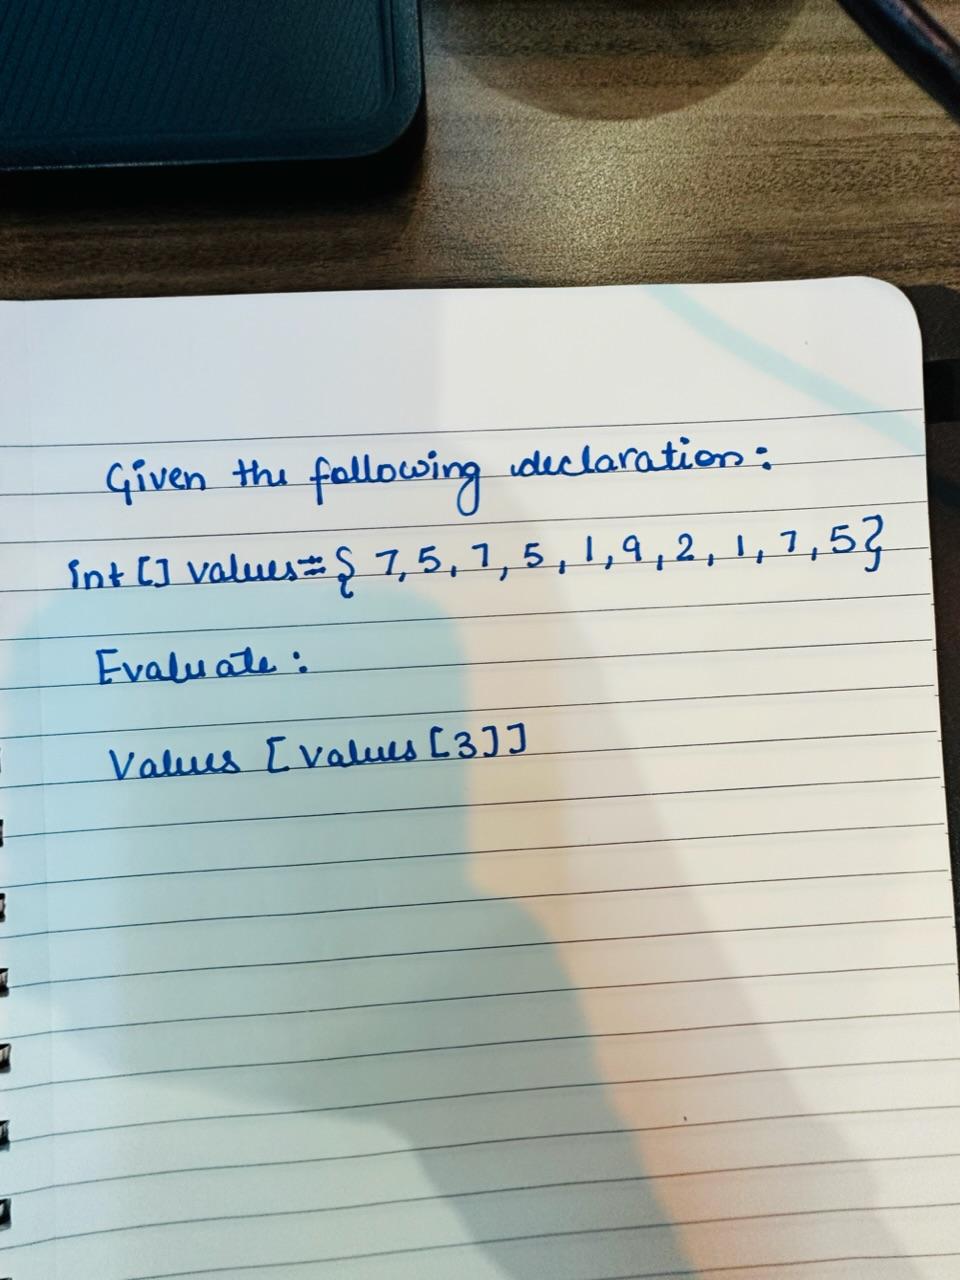 Given the following declaration:
int [] values = { 7, 5, 7, 5, 1, 9, 2, 1, 7, 5}
Evaluate:
Values [values [3]]